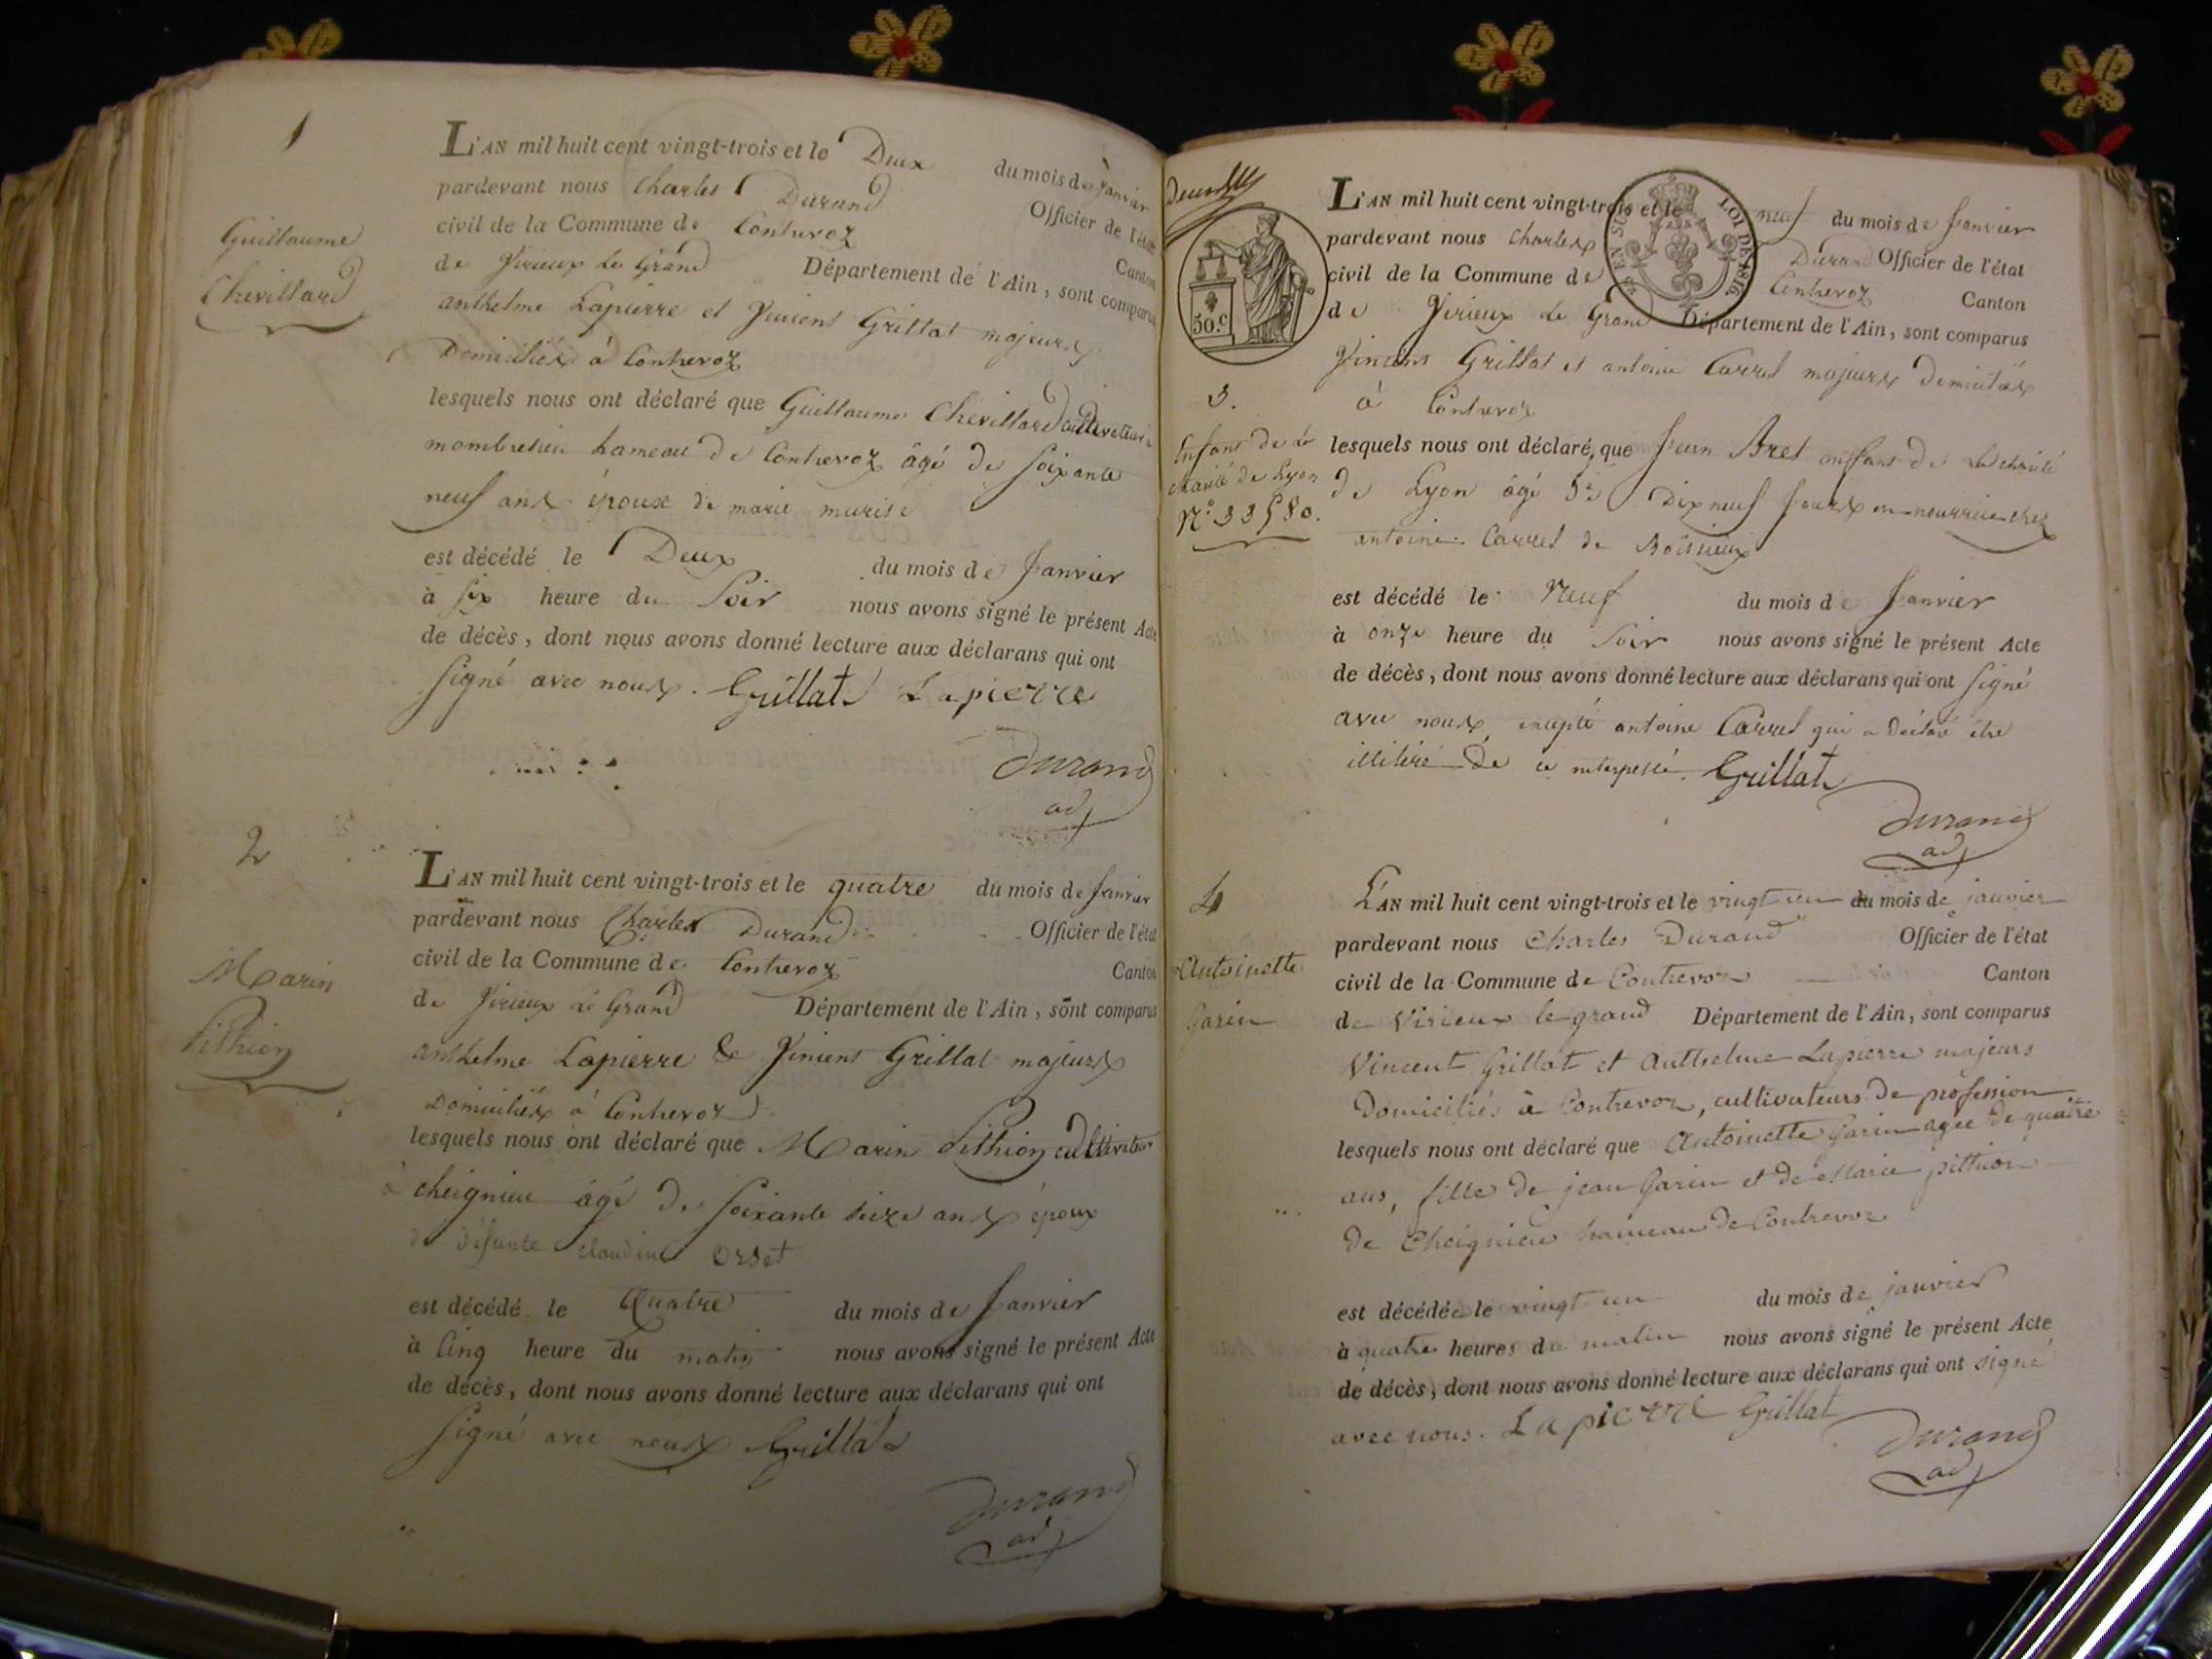 1
Guillaume
Chevillard
L'AN mil huit cent vingt-trois et le Deux du mois de Janvier
pardevant nous Charles Durand Officier de l'état
civil de la Commune de Contrevoz Canton
de Virieux Le Grand Département de l'Ain, sont comparus
anthelme Lapierre et Vincent Grillat majeurs
Domiciliés à Contrevoz
lesquels nous ont déclaré que Guillaume Chevillard cultivateur à
hameau de Contrevoz âgé de soixante
neuf ans époux de marie
est décédé le Deux du mois de Janvier
à six heure du Soir nous avons signé le présent Acte
de décès, dont nous avons donné lecture aux déclarans qui ont
signé avec nous. Grillat Lapierre
Durand
adj
2
Marin
Pithion
L'AN mil huit cent vingt-trois et le quatre du mois de Janvier
pardevant nous Charles Durand Officier de l'état
civil de la Commune de Contrevoz Canton
de Virieux Le Grand Département de l'Ain, sont comparus
anthelme Lapierre & Vincent Grillat majeurs
Domiciliés à Contrevoz
lesquels nous ont déclaré que Marin Pithion cultivateur
à cheignieu âgé de soixante seize ans époux
de défunte claudine Orset
est décédé le Quatre du mois de Janvier
à Cinq heure du matin nous avons signé le présent Acte
de décès, dont nous avons donné lecture aux déclarans qui ont
signé avec nous Grillat
Durand
adj
EN SUS LOI DE 1816.
50.c
3.
Enfant de la
charité de Lyon
N.o 33580.
L'AN mil huit cent vingt-trois et le neuf du mois de Janvier
pardevant nous Charles Durand Officier de l'état
civil de la Commune de Contrevoz Canton
de Virieux Le Grand Département de l'Ain, sont comparus
Vincent Grillat et antoine Carrel majeurs domiciliés
à Contrevoz
lesquels nous ont déclaré, que Jean Bret enfant de la charité
de Lyon âgé de Dix neuf jours en nourrice chez
antoine Carrel de Boissieux
est décédé le Neuf du mois de Janvier
à onze heure du Soir nous avons signé le présent Acte
de décès, dont nous avons donné lecture aux déclarans qui ont signé
avec nous, excepté antoine Carrel qui a déclaré être
illitéré de ce interpellé. Grillat
Durand
adj
4
Antoinette
Garin
L'AN mil huit cent vingt-trois et le vingt un du mois de janvier
pardevant nous Charles Durand Officier de l'état
civil de la Commune de Contrevoz Canton
de Virieux le grand Département de l'Ain, sont comparus
Vincent Grillat et Anthelme Lapierre majeurs
Domiciliés à Contrevoz, cultivateurs de profession
lesquels nous ont déclaré que Antoinette Garin agée de quatre
ans, fille de jean Garin et de Marie pithion
de Cheignieu hameau de Contrevoz
est décédée le vingt un du mois de janvier
à quatre heures du matin nous avons signé le présent Acte
de décès, dont nous avons donné lecture aux déclarans qui ont signé
avec nous. Lapierre Grillat
Durand
adj